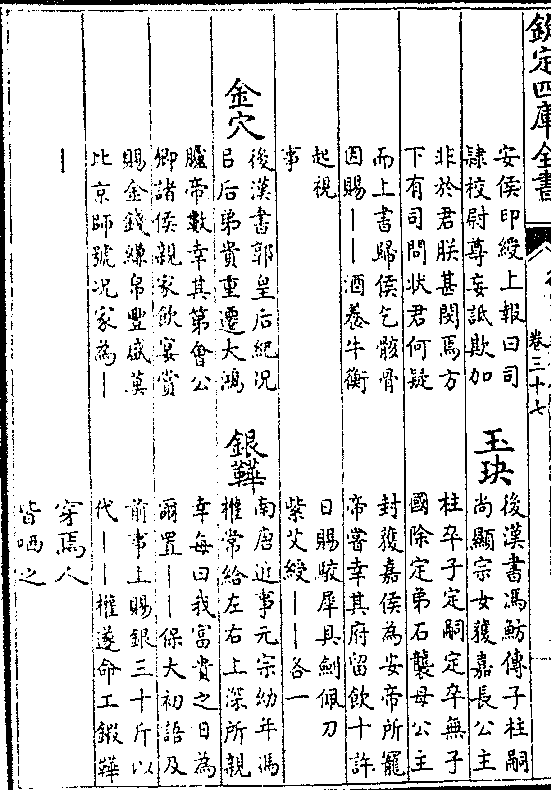 欽定四庫全書
卷三十七
安侯印綬上報曰司
隸校尉尊妄詆欺加
非於君朕甚閔焉方
下有司問状君何疑
而上書歸侯乞骸骨
因賜——酒養牛衡
起視
事
金穴
後漢書郭皇后紀况
㠯后弟貴重遷大鴻
臚帝數幸其第會公
卿諸侯親家飲宴賞
賜金錢縑帛豐盛莫
比京師號况家為—
—
玉玦
後漢書馮魴傳子柱嗣
尚顯宗女獲嘉長公主
柱卒子定嗣定卒無子
國除定弟石襲母公主
封獲嘉侯為安帝所寵
帝嘗幸其府留飲十許
日賜駮犀具劍佩刀
紫艾綬——各一
銀鞾
南唐近事元宗幼年馮
權常給左右上深所親
幸每曰我富貴之日為
爾置——保大初語及
前事上賜銀三十斤以
代——權遂命工鍜鞾
穿焉人
皆哂之